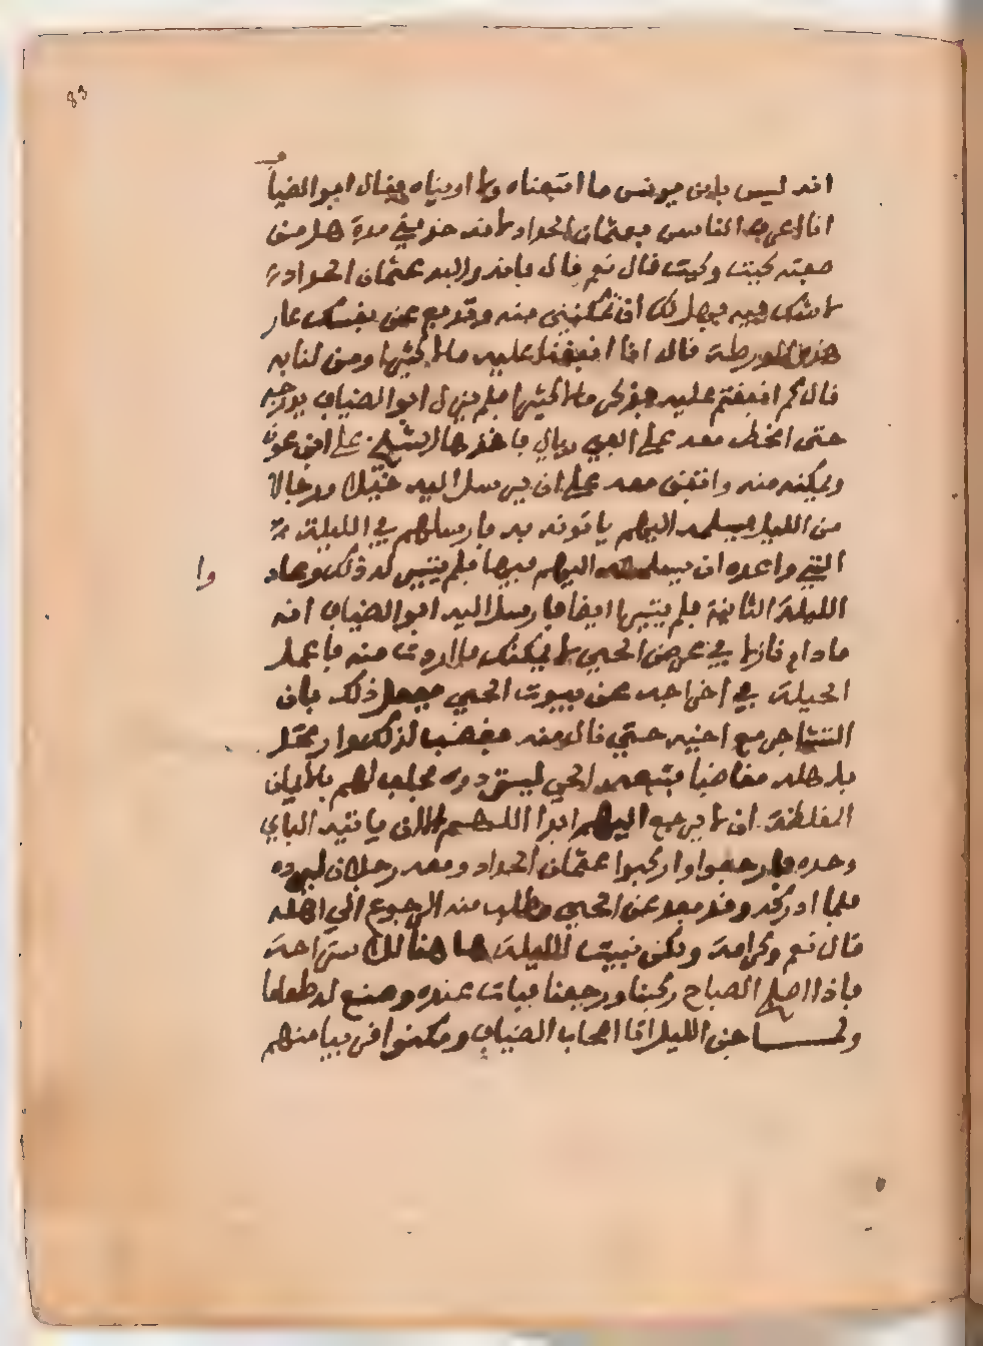 83
انه ليس بابن يونس ما اتبعناه ولا اويناه فقال ابو الضيا
ف
انا اعرف الناس بعثمان الحداد لانه خدمني مدة هل من
صفته كيت وكيت قال نعم قال فانه والله عثمان الحداد
لا شك فيه فهل لك ان تمكنني منه وتدفع عن نفسك عار
هذه الورطة قال انا انفقنا عليه مالا كثيرا ومن لنا به
قال كم انفقتم عليه فذكر مالا كثيرا فلم يزل ابو الضياف
حتى انحط معه على الفي ريال ياخذها الشيخ علي ابن عون
ويمكنه منه واتفق معه على ان يرسل اليه خيلا ورجالا
من الليل يسلمه اليهم ياتونه به فارسلهم في الليلة
التي واعده ان يسلمه اليهم فيها فلم يتيسر له ذلك وعاد
وا
الليلة الثانية فلم يتيسر ايضا فارسل اليه ابو الضياف انه
ما دام نازلا في عرض الحي لا يمكنك ما اردت منه فاعمل
الحيلة في اخراجه عن بيوت الحي ففعل ذلك بان
التشاجر مع اخيه حتى نال منه فغضب لذلك وارتحل
باهله مغاضبا فتبعه الحي ليستردوه فحلف لهم بالايمان
المغلظة ان لا يرجع اليهم ابدا اللهم الا ان ياتيه الباي
وحده فارجعوا واركبوا عثمان الحداد ومعه رجلان ليرده
فلما ادركه وقد بعد عن الحي وطلب منه الرجوع الى اهله
قال نعم وكرامة ولكن نبيت الليلة ها هنا للاستراحة
فاذا اصبح الصباح ركبنا ورجعنا فبات عنده وصنع له طعاما
ولما جن الليل اتا اصحاب الضياف ومكنوا قريبا منهم